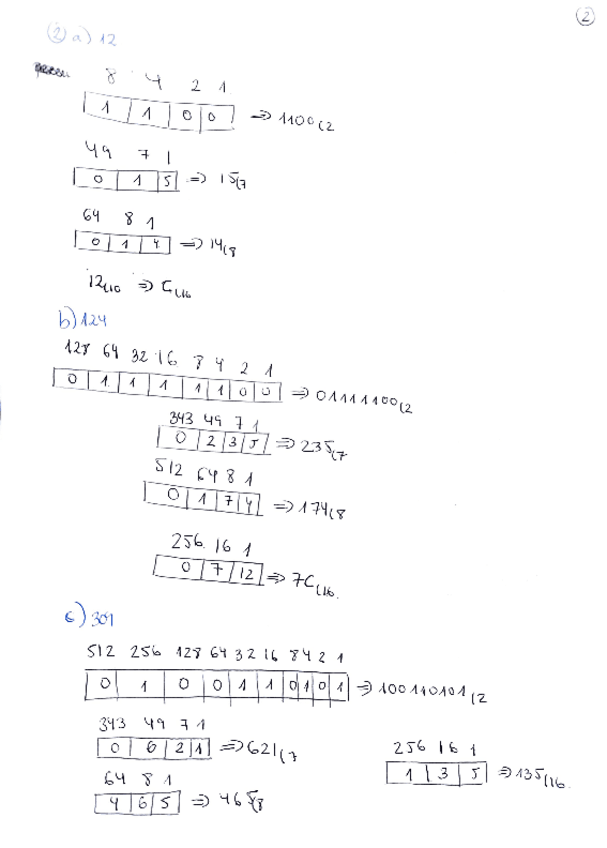 2
2 a) 12
8 4 2 1
1 1 0 0 => 1100(2
49 7 1
0 1 5 => 15(7
64 8 1
0 1 4 => 14(8
12(10 => C(16
b) 124
128 64 32 16 8 4 2 1
0 1 1 1 1 1 0 0 => 01111100(2
343 49 7 1
0 2 3 5 => 235(7
512 64 8 1
0 1 7 4 => 174(8
256 16 1
0 7 12 => 7C(16.
c) 309
512 256 128 64 32 16 8 4 2 1
0 1 0 0 1 1 0 1 0 1 => 100110101(2
343 49 7 1
0 6 2 1 => 621(7
64 8 1
4 6 5 => 465(8
256 16 1
1 3 5 => 135(16.